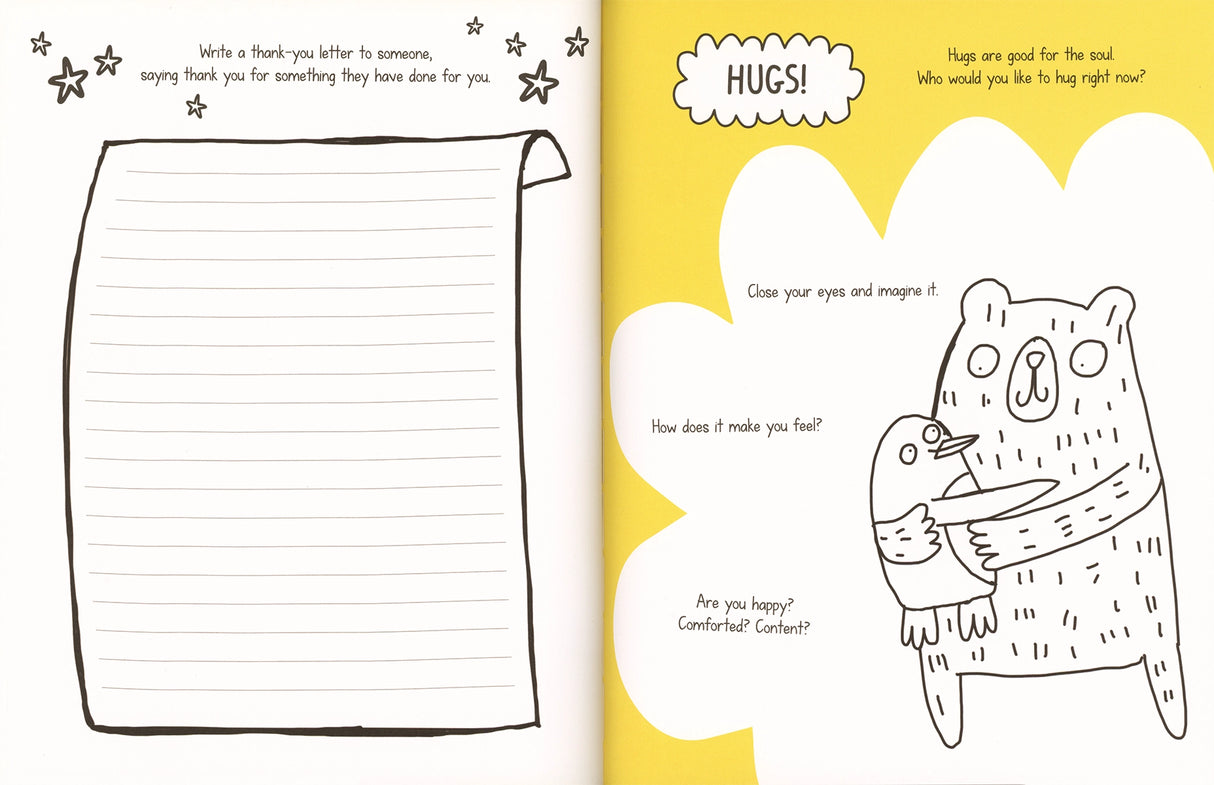 Write a thank-you letter to someone,
saying thank you for something they have done for you.
HUGS!
Hugs are good for the soul.
Who would you like to hug right now?
Close your eyes and imagine it.
How does it make you feel?
Are you happy?
Comforted? Content?